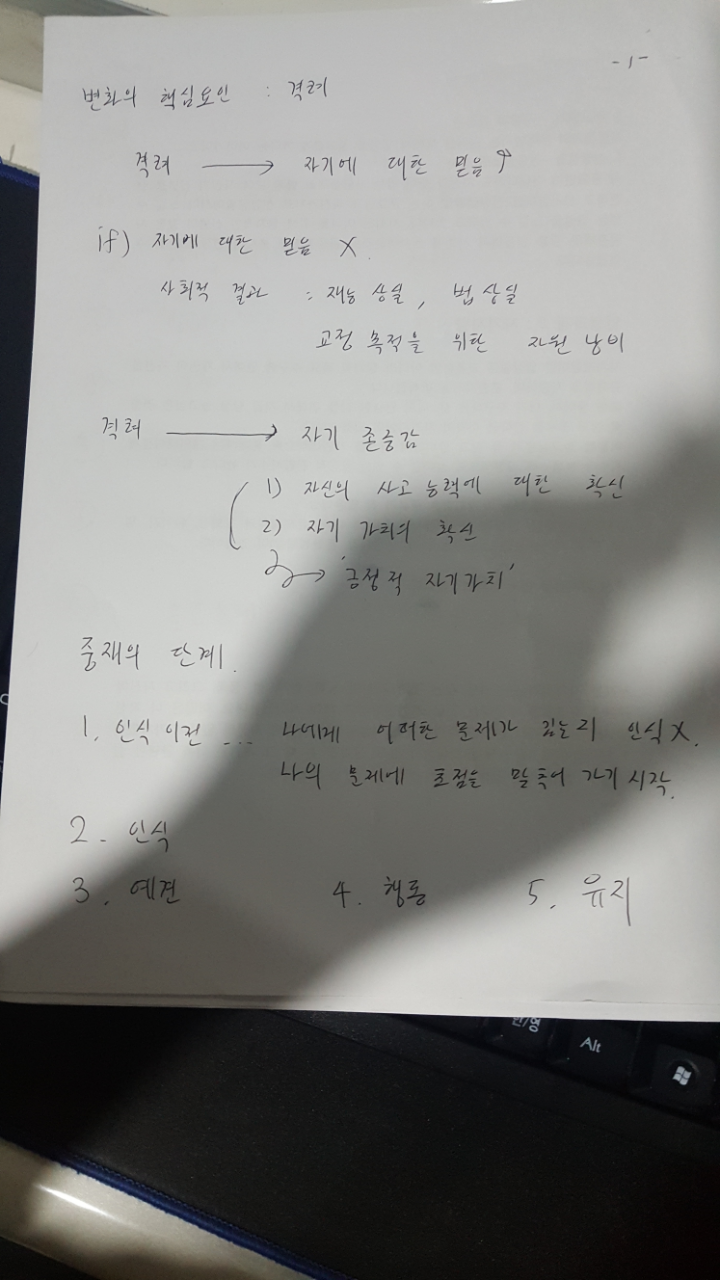 -1-
변화의 핵심요인 : 격려
격려 → 자기에 대한 믿음↑
if) 자기에 대한 믿음 X.
사회적 결과 : 재능 상실, 법 상실
교정 목적을 위한 자원 낭비
격려 → 자기 존중감
1) 자신의 사고 능력에 대한 확신
2) 자기 가치의 확신
→ '긍정적 자기가치'
중재의 단계.
1. 인식 이전 ... 나에게 어떠한 문제가 있는지 인식X.
나의 문제에 초점을 맞추어 가기 시작.
2. 인식
3. 예견 4. 행동 5. 유지
한/영
Alt